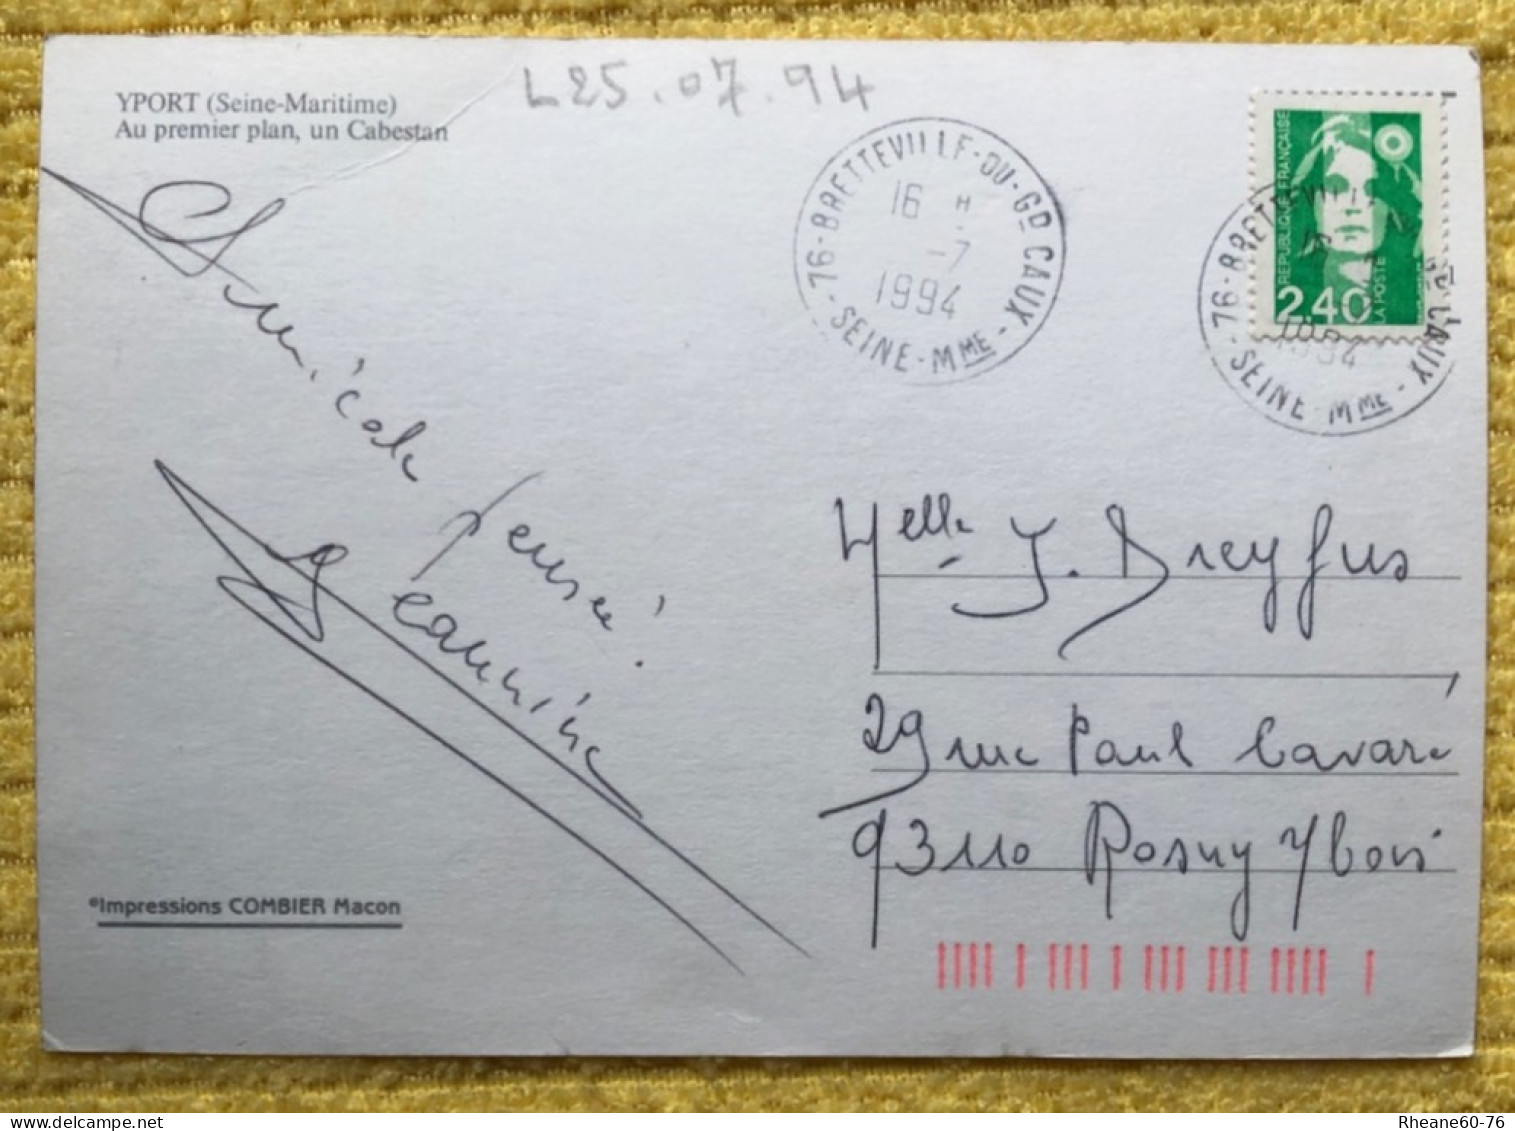 YPORT (Seine-Maritime)
Au premier plan, un Cabestan
L25.07.94
76-BRETTEVILLE-DU-GD CAUX
16 H
-7
1994
SEINE-MME
REPUBLIQUE FRANÇAISE
2.40
LA POSTE
76-BRETTEVILLE
CAUX
1994
SEINE-MME
Amicale pensée !
Jeannine
Melle J. Dreyfus
29 rue Paul Cavaré
93110 Rosny s/bois
©Impressions COMBIER Macon
Rheane60-76